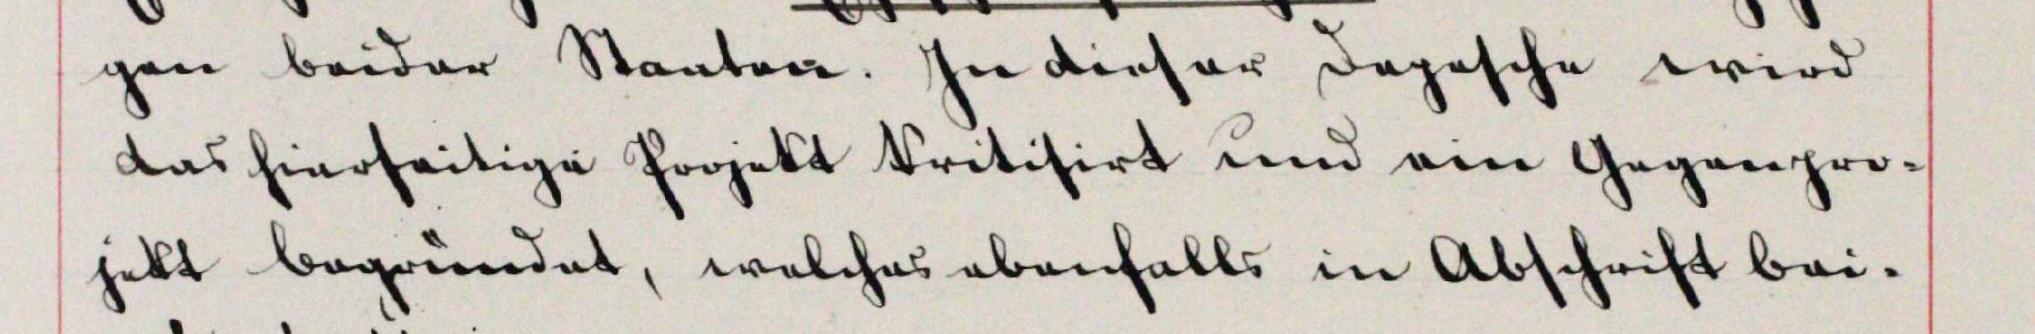 gen beider Staaten. In dieser Depesche wird
das hierseitige Projekt kritisirt und ein Gegenpro-
jekt begründet, welches ebenfalls in Abschrift bei-